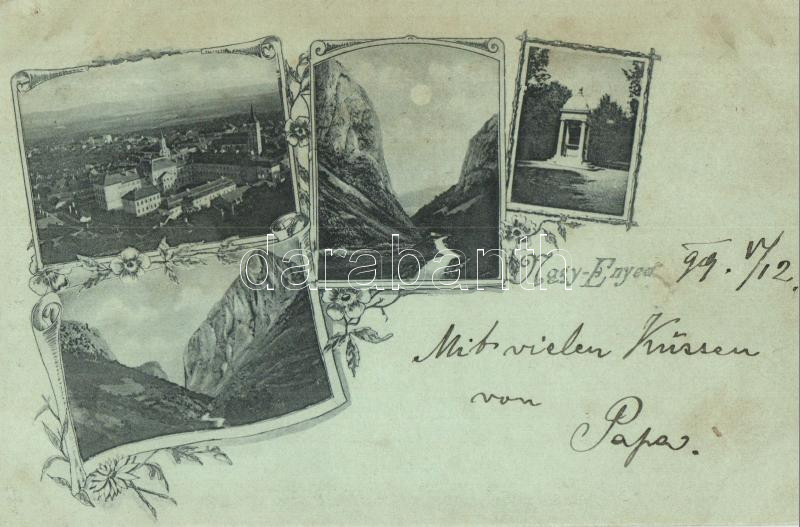 darabanth
Nagy-Enyed 99. V/12.
Mit vielen Küssen
von
Papa.